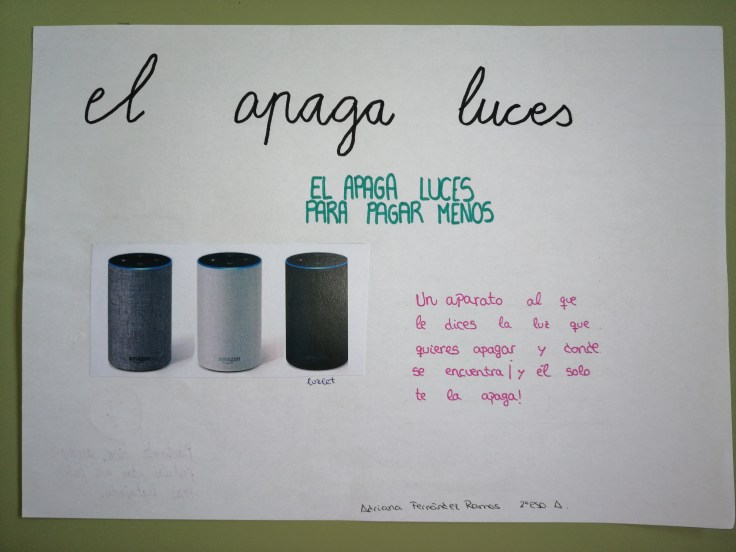 el apaga luces
EL APAGA LUCES
PARA PAGAR MENOS
amazon amazon
luxlet
Un aparato al que
le dices la luz que
quieres apagar y donde
se encuentra ¡y él solo
te la apaga!
Adriana Fernández Ramos 2ºESO A.